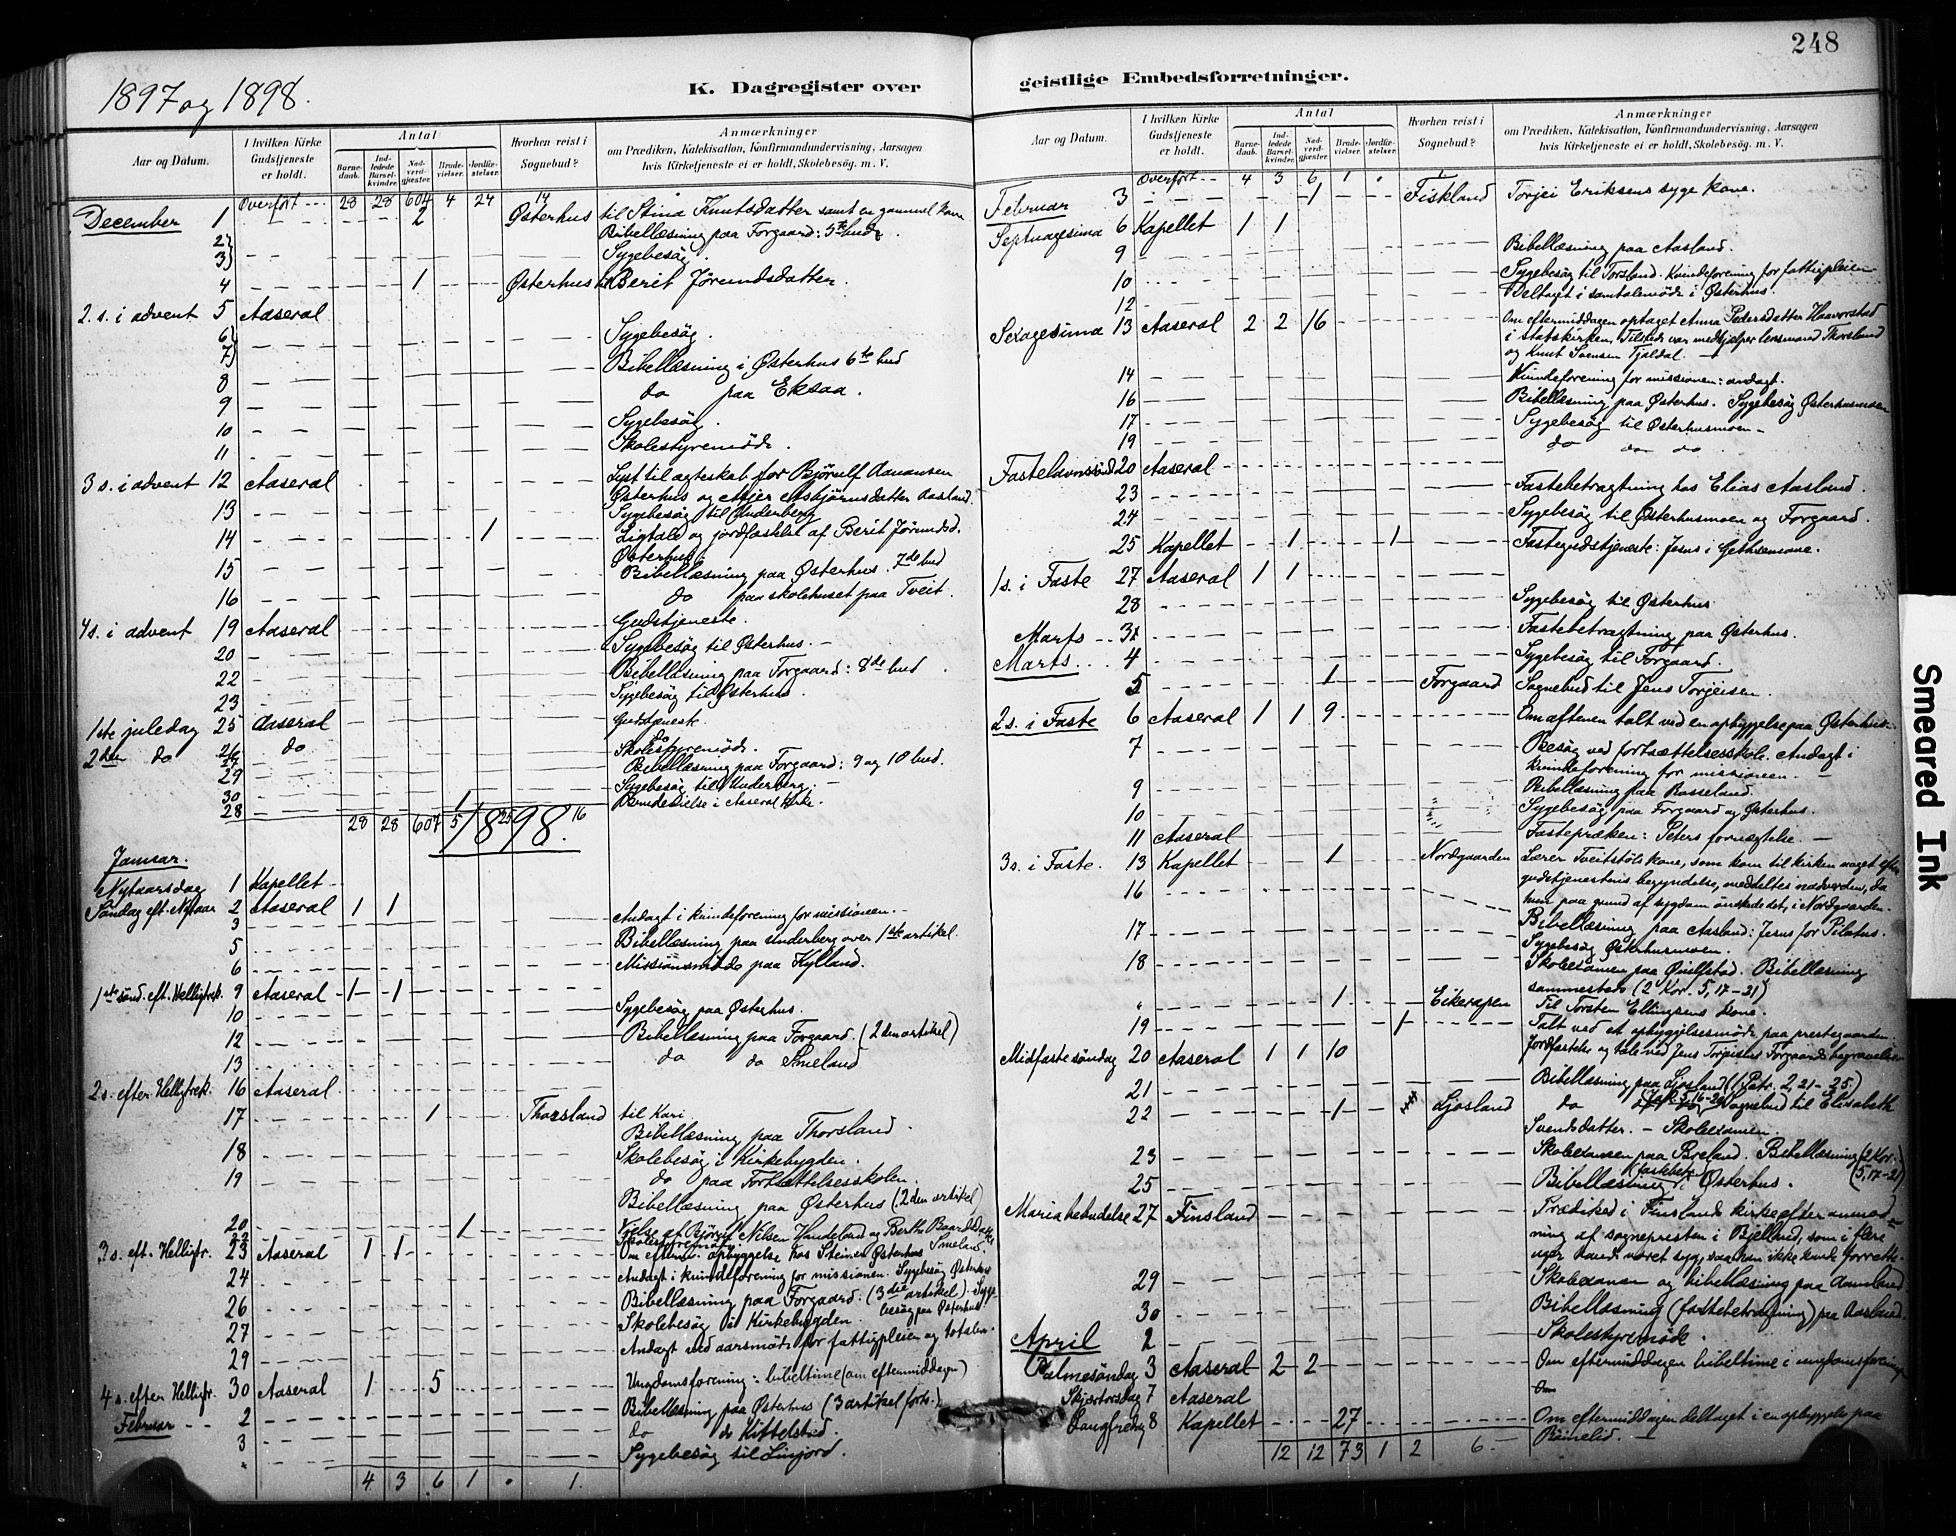 248
1897 og 1898.
K. Dagregister over
Aar og Datum.
I hvilken Kirke Gudstjeneste er holdt.
Antal
Barne-daab.
Ind-ledede Barsel-kvinder.
Nad-verd-gjæster.
Brude-vielser.
Jordfæ-stelser.
Hvorhen reist i Sognebud?
Anmærkninger
om Prædiken, Katekisation, Konfirmandundervisning, Aarsagen
hvis Kirketjeneste ei er holdt, Skolebesøg. m. V.
Overført 28 28 604 4 24 14
December 1 2 Østerhus til Stina Knutsdatter samt en gammel kone
Bibellæsning paa Forgaard: 5te bud
2)
3) Sygebesøg.
4 1 Østerhus til Berit Jørundsdatter.
2. s. i advent 5 Aaseral
6) Sygebesøg.
7) Bibellæsning i Østerhus 6te bud
8 do paa Eksaa.
9 Sygebesøg.
10 Skolestyremøde.
11
3 s. i advent 12 Aaseral Lyst til ægteskab for Bjørulf Aanansen
Østerhus og Asbjørnsdatter Aasland
13 Sygebesøg til Underberg
14 1 Ligtale og jordfæstelse af Berit Jørundsd.
Østerhus.
15 Bibellæsning paa Østerhus. 7de bud
16 do paa skolehuset paa Tveit.
4 s. i advent 19 Aaseral Gudstjeneste.
20 Sygebesøg til Østerhus.
22 Bibellæsning paa Forgaard: 8de bud
23 Sygebesøg til Østerhus.
1ste juledag 25 Aaseral Gudstjeneste.
2den do 26 do do
Skolestyremøde.
29 Bibellæsning paa Forgaard: 9 og 10 bud.
30 Sygebesøg til Underberg.
28 1 Brudevielse i Aaseral Kirke.
28 28 607 5 25 16
1898.
Januar.
Nytaarsdag 1 Kapellet
Søndag eft. Nytaar 2 Aaseral 1 1
3 Andagt i kvindeforening for missionen.
5 Bibellæsning paa Underberg over 1ste artikel.
6 Missionsmøde paa Kylland.
1ste sønd. eft. Helligtrek. 9 Aaseral 1 1
10 Sygebesøg paa Østerhus.
12 Bibellæsning paa Forgaard. (2den artikel)
13 do do Smeland
2 s. efter Helligtrek. 16 Aaseral
17 1 Thorsland til Kari
Bibellæsning paa Thorsland.
18 Skolebesøg i Kirkebygden.
19 do paa Fortsættelsesskolen.
Bibellæsning paa Østerhus (2den artikel)
20 1 Vielse af Nilsen og Berthe
22 Skolestyremøde. Smeland.
3 s. eft. Helligtr. 23 Aaseral 1 1 Om efterm. opbyggelse hos Steinar Østerhus
24 Andagt i kvindeforening for missionen. Sygebesøg Østerhus
26 Bibellæsning paa Forgaard. (3die artikel). Syge-
besøg paa Østerhus
27 Skolebesøg i Kirkebygden.
29 Andagt ved aarsmøde for fattigpleien og totalen.
4 s. efter Helligtr. 30 Aaseral 1 5 Ungdomsforening: bibeltime (om eftermiddagen)
Februar 2 Bibellæsning paa Østerhus (3 artikel forts.)
3 do do Kittelstad
" Sygebesøg til Linjord.
4 3 6 1 . 1.
geistlige Embedsforretninger.
Aar og Datum.
I hvilken Kirke Gudstjeneste er holdt.
Antal
Barne-daab.
Ind-ledede Barsel-kvinder.
Nad-verd-gjæster.
Brude-vielser.
Jordfæ-stelser.
Hvorhen reist i Sognebud?
Anmærkninger
om Prædiken, Katekisation, Konfirmandundervisning, Aarsagen
hvis Kirketjeneste ei er holdt, Skolebesøg. m. V.
Overført 4 3 6 1 . 1
Februar 3 1 Fiskland Torjei Eriksens syge kone.
Septuagesima 6 Kapellet 1 1
9 Bibellæsning paa Aasland.
10 Sygebesøg til Torsland. Kvindeforening for fattigpleien
12 Deltaget i samtalemøde i Østerhus.
Sexagesima 13 Aaseral 2 2 16 Om eftermiddagen optaget Anna Pedersdatter Haaverstad
i statskirken. Tilstede var medhjelper lensmand Thorsland
og Knut Svensen Tjaldal.
14 Kvindeforening for missionen: andagt.
16 Bibellæsning paa Østerhus. Sygebesøg Østerhusmoen
17 Sygebesøg til Østerhusmoen
19 do do do
Fastelavnssønd. 20 Aaseral
23 Fastebetragtning hos Elias Aasland.
24 Sygebesøg til Østerhusmoen og Forgaard.
25 Kapellet 1 1 Fastegudstjeneste: Jesus i Gethsemane.
1 s. i Faste 27 Aaseral 1 1
28 Sygebesøg til Østerhus
Marts 3 Fastebetragtning paa Østerhus.
Marts 4 Sygebesøg til Forgaard.
5 1 Forgaard Sognebud til Jens Torjeisen.
2 s. i Faste 6 Aaseral 1 1 9 Om aftenen talt ved en opbyggelse paa Østerhus.
7 Besøg ved fortsættelsesskole. Andagt i
kvindeforening for missionen.
9 Bibellæsning paa Rosseland.
10 Sygebesøg paa Forgaard og Østerhus.
11 Aaseral Fastepræken: Peters fornægtelse
3 s. i Faste. 13 Kapellet 1 Nordgaarden Lærer Tveitstøls kone, som kom til kirken noget efter
gudstjenestens begyndelse, meddeltes nadverden, da
hun paa grund af sygdom ønskede det, i Nordgaarden.
16 Bibellæsning paa Aasland: Jesus for Pilatus.
17 Sygebesøg Østerhusmoen.
18 Skolexamen paa Bibellæsning
sammesteds (2 Kor. 5, 17–21)
" 1 Eikerapen Til Torsten Ellingsens kone.
19 1 Talt ved et opbyggelsesmøde paa prestegaarden.
Jordfæstelse og tale ved Jens Torjeisens Forgaards begravelse
Midfastesøndag 20 Aaseral 1 1 10
21 Bibellæsning paa Ljosland (1 Petr. 2, 21–25.)
22 1 Ljosland do Sognebud til Elisabeth
Svendsdatter. – Skolexamen.
23 Skolexamen paa Breland. Bibellæsning (2 Kor. 5, 17–21)
25 Bibellæsning (fastebetr.) i Østerhus.
Maria bebudelse 27 Finsland Prædiked i Finslands kirke efter anmod-
ning af sognepresten i Bjelland, som i flere
uger havde været syg, saa han ikke kunde forrette.
29 Skolexamen og bibellæsning paa
30 Bibellæsning (fastebetragtning) paa Aasland.
April 2 Skolestyremøde.
Palmesøndag 3 Aaseral 2 2 Om eftermiddagen bibeltime i ungdomsforening
Skjærtorsdag 7 Aaseral
Langfredag 8 Kapellet 27 Om eftermiddagen deltaget i en opbyggelse paa
Røinelid.
12 12 73 1 2 6
Smeared Ink